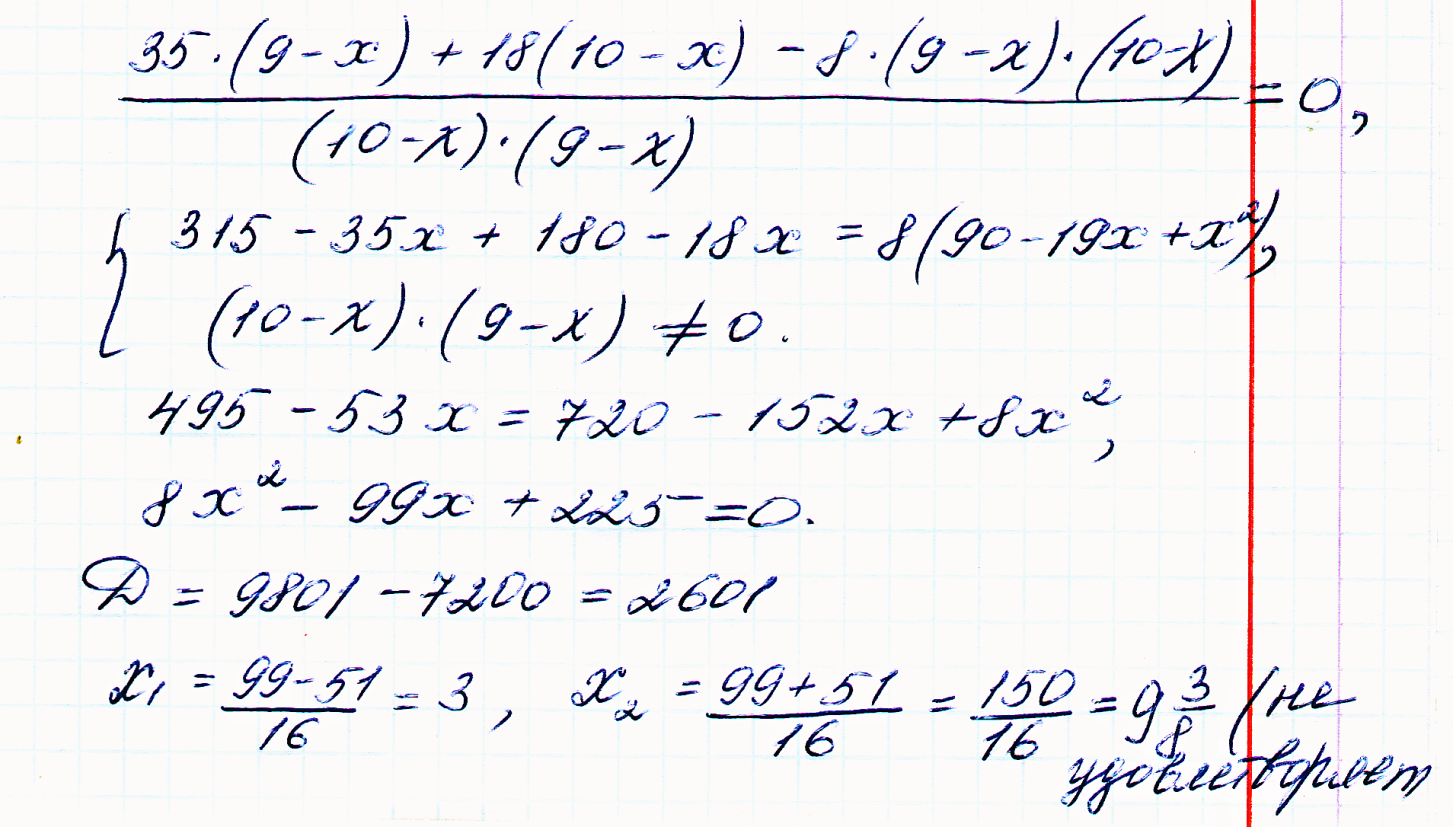 35·(9-x)+18(10-x)-8·(9-x)·(10-x)
/ (10-x)·(9-x) = 0,
{ 315-35x+180-18x=8(90-19x+x²),
(10-x)·(9-x)≠0.
495-53x=720-152x+8x²,
8x²-99x+225=0.
D=9801-7200=2601
x₁ = 99-51/16 = 3, x₂ = 99+51/16 = 150/16 = 9 3/8 (не
удовлетворяет